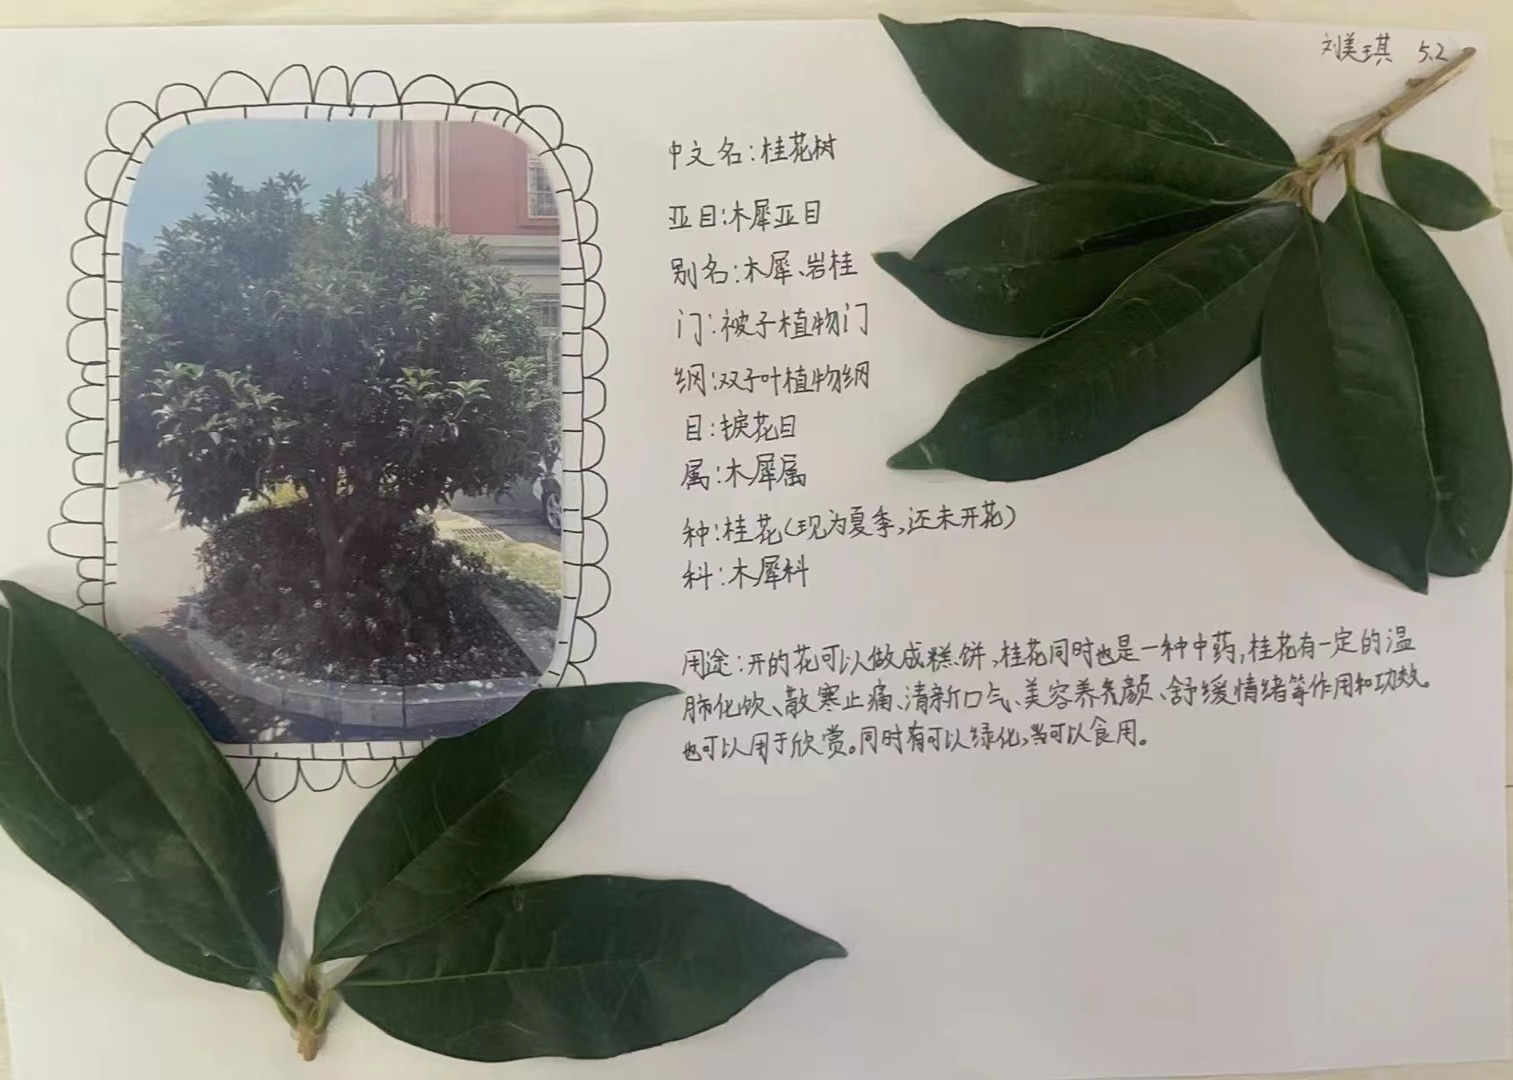 刘美琪 5.2
中文名:桂花树
亚目:木犀亚目
别名:木犀、岩桂
门:被子植物门
纲:双子叶植物纲
目:捩花目
属:木犀属
种:桂花(现为夏季,还未开花)
科:木犀科
用途:开的花可以做成糕饼,桂花同时也是一种中药,桂花有一定的温
肺化饮、散寒止痛、清新口气、美容养颜、舒缓情绪等作用和功效。
也可以用于欣赏。同时有可以绿化,当可以食用。